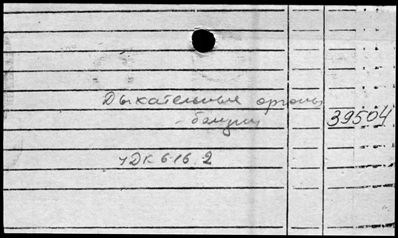 Дыхательные органы
39504
УДК 616.2